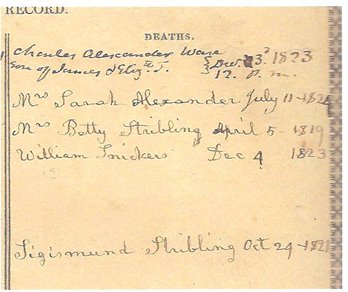 RECORD.
DEATHS.
Charles Alexander Ware
son of James & Eliz. T. 1823
12. P. m.
Mrs Sarah Alexander July 11 - 1824
Mrs Betty Stribling April 5 - 1819
William Snickers Dec 4 1823
Sigismund Stribling Oct 24 - 182